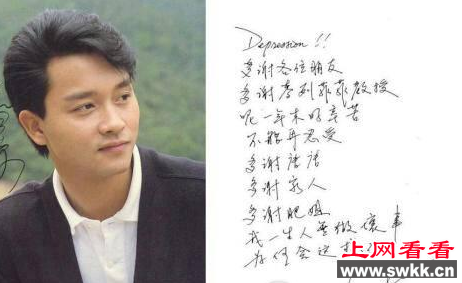 Depression !!
多謝各位朋友
多謝麥列菲菲教授
呢一年來好辛苦
不能再忍受
多謝唐唐
多謝家人
多謝肥姐
我一生人無做壞事
為何會這
上网看看
www.swkk.cn